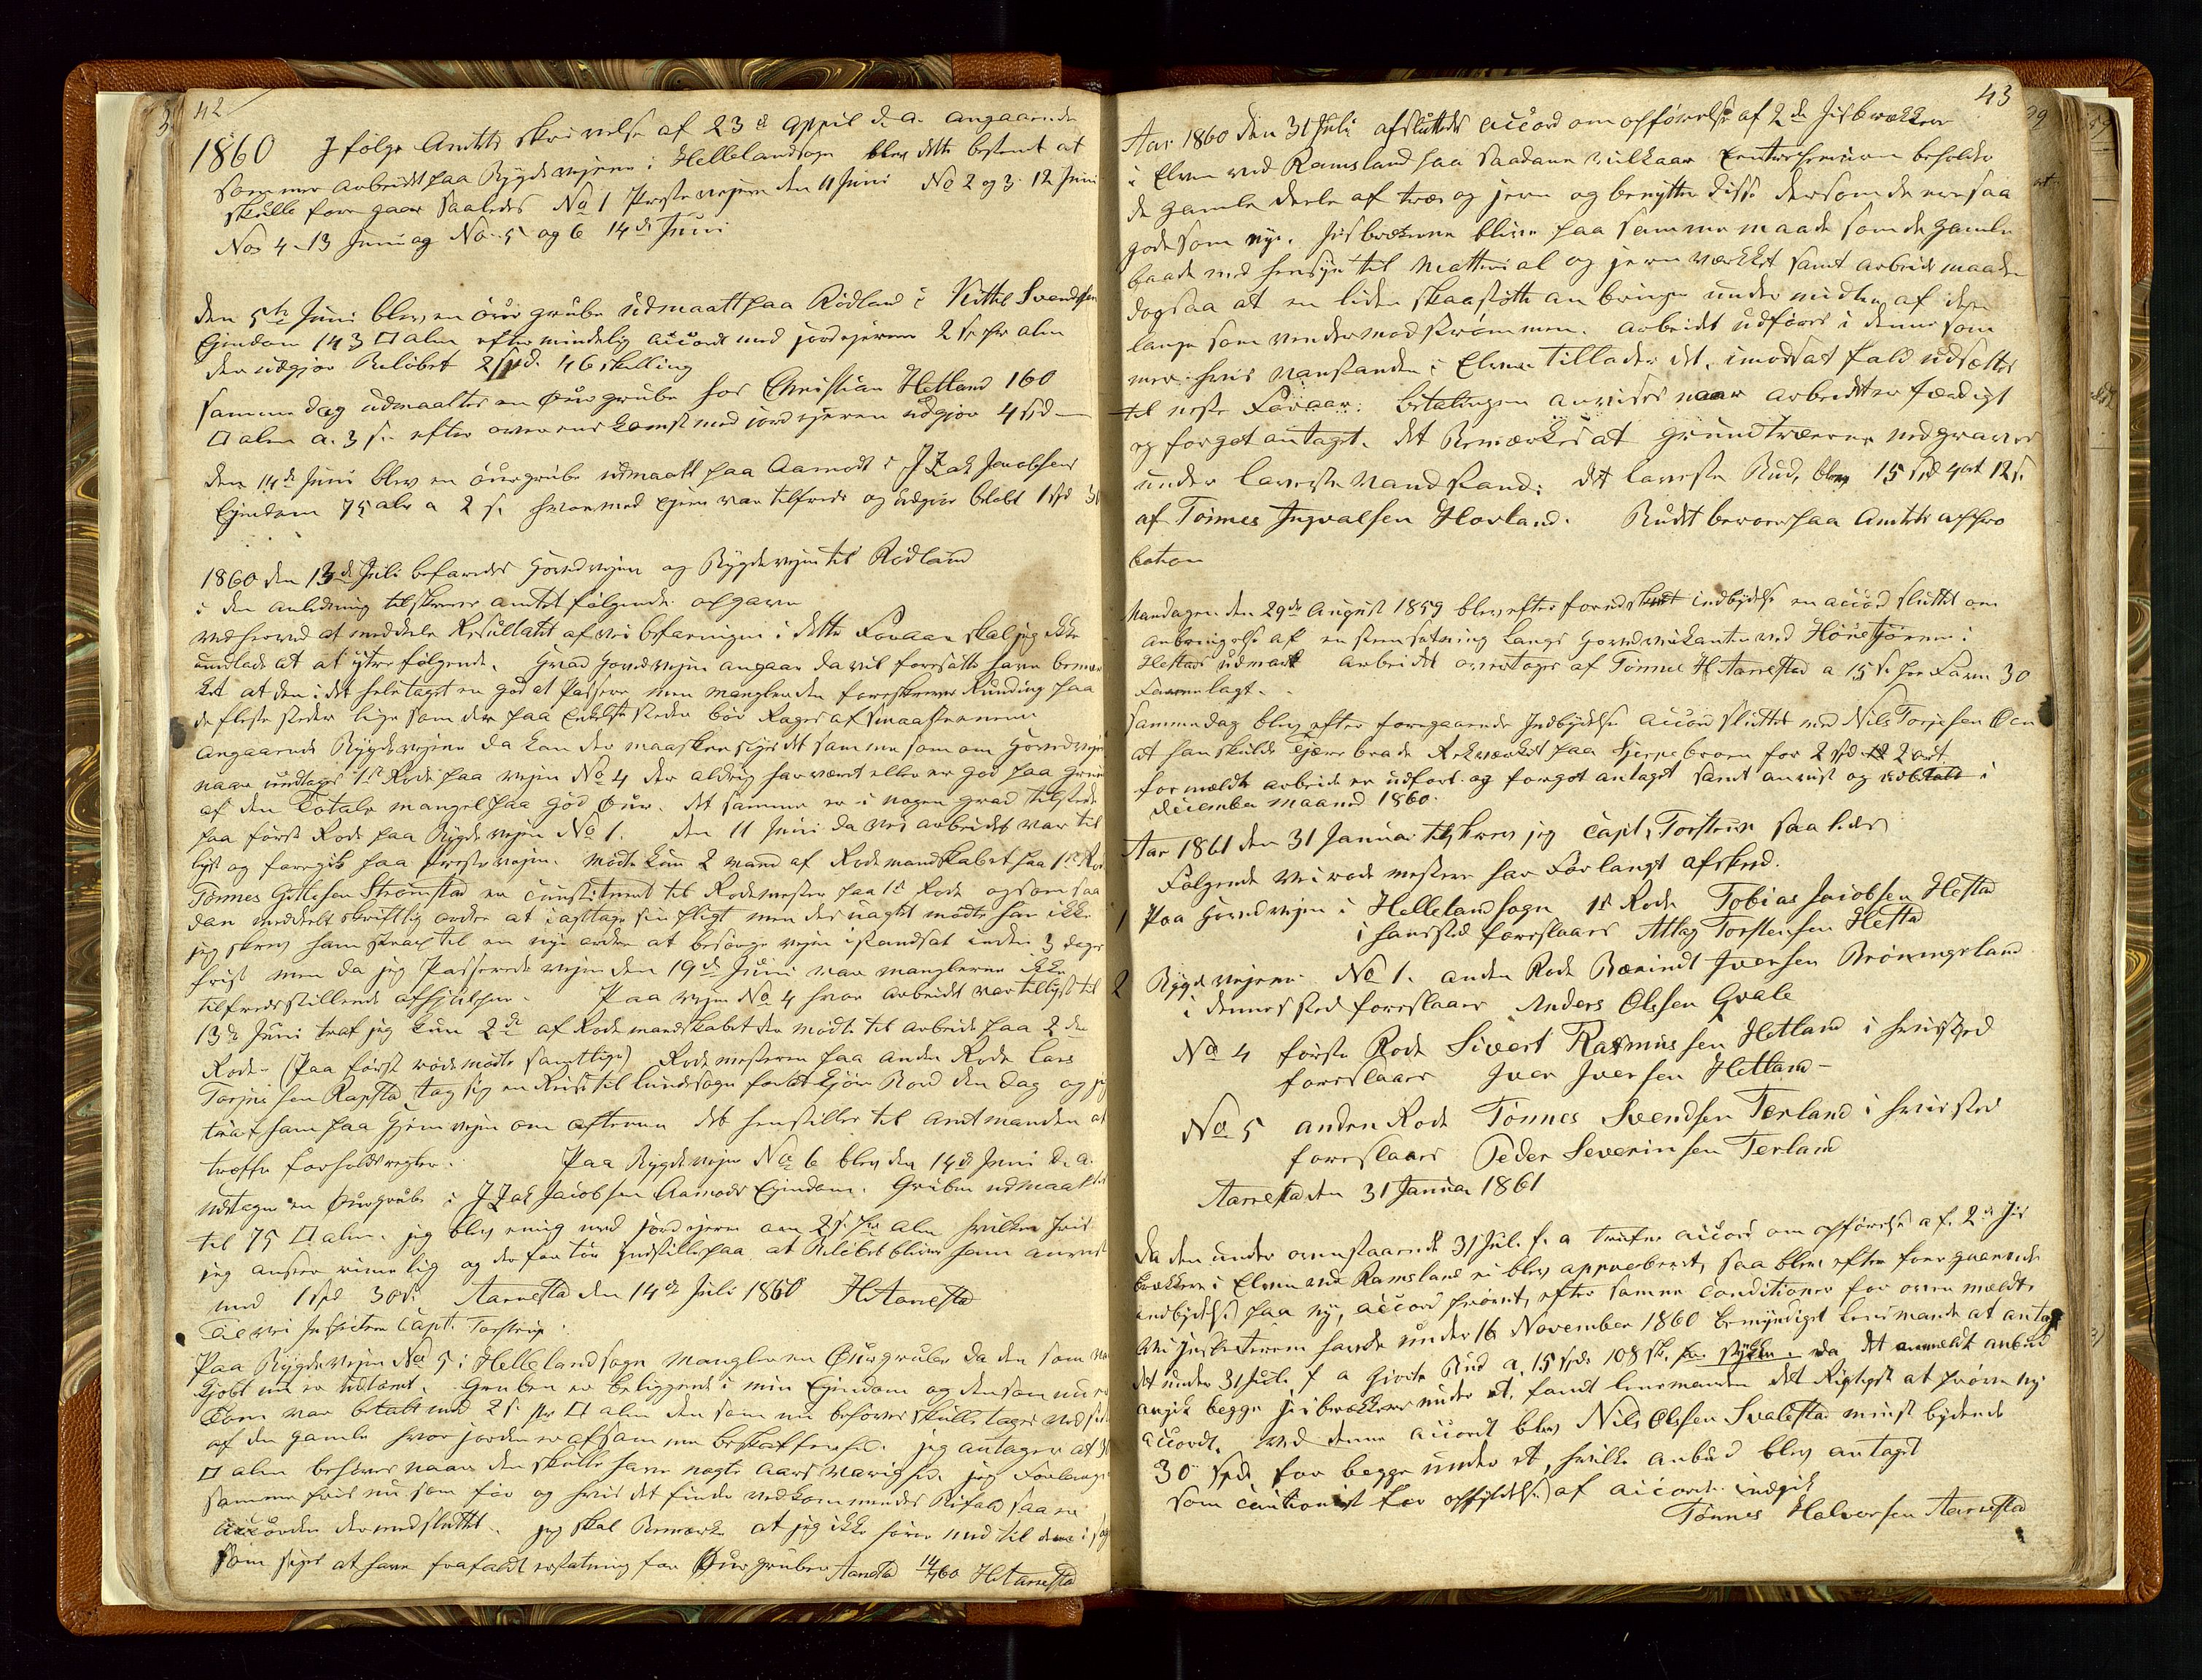 42
1860 Ifølge Amtets skrivelse af 23de April d. A. angaaende
sommer arbeidet paa Bygdeveiene i Hellelandsogn blev dette bestemt at
skulle foregaar saaledes No 1 Prestevejen den 11 Juni No 2 og 3. 12 Juni
Nos 4. 13 Juni og No 5 og 6 14de Juni
den 5te Juni blev en ouur grube udmaalt paa Rødland i Kittel Svendsen
Ejendom 143 □ alen efter mindelig accord med jordejeren 2 s. pr alen
der udgjør Beløbet 2 spd. 46 skilling
samme dag udmaaltes en Øurgrube hos Christian Hetland 160
□ alen a. 3 s. efter overenskomst med jordejeren udgjør 4 spd
den 14de Juni blev en øurgrube udmaalt paa Aamodt i IZak Jacobsens
Ejendom 75 alen a 2 s. hvormed Ejeren var tilfreds og udgjør beløb 1 spd 30
1860 den 13de Juli befaredes Hovedvejen og Bygdevejen til Rødland
i den anledning tilskrever amtet følgende opgaven
Vedhoved at meddele Resultatet af vei befaringen i dette Foraar skal jeg ikke
undlade at at ytre følgende. Hvad Hovedvejen angaar da vil foresatte have bemær
ket at den i det hele taget en god at Passere men mangler den foreskrevne Runding paa
de fleste steder lige som der paa Enkelte steder bør Rages af smaastenene
Angaaende Bygdevejene da kan der maaske siges det samme som om Hovedvejen
naar undtages 1ste Rode paa vejen No 4 der aldrig har været eller er god paa grund
af den Totale mangel paa god Øur. det samme er i nogen grad tilstede
paa først Rode paa Bygdevejen No 1. den 11 Juni da vei arbeidet var til
lyst og foregik paa Prestevejen. mødte kun 2 mand af Rodemandskabet paa 1ste Rode
Tønnes Gitlesen Strømstad er constitueret til Rodemester paa 1st Rode og som saa
dan meddelt skriftlig ordre at iagttage sin Pligt men des uagtet mødte han ikke
jeg skrev ham strax til en ny ordre at besørge vejen istandsat inden 3 dages
frist men da jeg Passerede vejen den 19de Juni var manglerne ikke
tilfredsstillende afhjulpne. Paa vejen No 4 hvor arbeidet var tillyst til
13de Juni traf jeg kun 2de af Rodemandskabet der mødte til arbeide paa 2den
Rode (Paa først rode mødte samtlige) Rodemesteren paa anden Rode Lars
Torjusen Rapstad, tog sig en Reise til Lundesogn for at kjøre Bord den dag og jeg
traf ham paa Hjemvejen om aftenen det henstilles til Amtmanden at
træffe forholdsregler. Paa Bygdevejen No 6 blev den 14de Juni d. A.
udtagen en Øurgrube i IZak Jacobsen Aamodt Ejendom. Gruben udmaaltes
til 75 □ alen. jeg blev enig med jordejeren om 2 s. pr alen hvilken Pris
jeg anser rimelig og derfor tør indstille paa at Beløbet bliver ham anvist
med 1 spd 30 s. Aarrestad den 14de Juli 1860 H Aarrestad
Til vei Inspecteur Capt. Torstrup.
Paa Bygdevejen No 5 i Hellelandsogn mangler en Øurgrube da den som var
kjøbt nu er udtømt. Gruben er beliggende i min Ejendom og den som nu er
tom var betalt med 2 s. pr □ alen den som nu behøves skulle tages ved siden
af den gamle hvor jorden er af samme beskaffenhed. jeg antager at 30
□ alen behøves naar den skulle have nogle aars varighed. jeg Forlanger
samme Pris nu som før og hvis det finder vedkommendes Bifald saa er
accorden dermed sluttet. jeg skal Bemærke at jeg ikke hører med til dem i sogn
som siges at have frafaldt erstatning for Øurgruber Aarrestad 14/7 60 H Aarrestad
43
Aar 1860 den 31 Juli afsluttedes accord om opførelse af 2de Jisbrækkere
i Elven ved Ramsland paa saadane vilkaar. Entreprenøren beholder
de gamle dele af træ og jern og benytter disse dersom de ere saa
gode som nye. Jisbrækerne blive paa samme maade som de gamle
baade med hensyn til Matterial og jernværkket samt arbeidsmaaden
dog saa at en liden skraastøtte anbringes under midten af den
lange som vender mod strømmen. Arbeidet udføres i denne som
mer. hvis vanstanden i Elven tillader det, i modsat fald udsættes
til neste Foraar. betalingen anvises naar arbeidet er færdigt
og for got antaget. det Bemærkes at grundtræerne nedgraves
under laveste Vandstand. det laveste Bud, blev 15 spd 4 ort 12 s.
af Tønnes Ingvalsen Hovland. Budet beroer paa Amtets appro
bation
Mandagen den 29de August 1859 blev efter forudskeet indbydelse en accord sluttet om
anbringelse af en steensætning langs hovedveikanten ved Hønetjønnen i
Hestads udmark Arbeidet overtages af Tønnes H Aarrestad a 15 s. pr Favn 30
Favne lagt.
samme dag blev efter foregaaende Indbydelse accord sluttet med Nils Torjesen Øen
at han skulde tjære brede Rekværket paa Gjerpebroen for 2 spd 2 ort
formældte arbeide er udført og forgot antaget samt anvist og udbetalt i
December maaned 1860.
Aar 1861 den 31 Januar tilskrev jeg Capt. Torstrup saaledes
Følgende vei rodemestere har Forlangt afsked.
1 Paa Hovedvejen i Hellelandsogn 1st Rode Tobias Jacobsen Hestad
i hans sted foreslaaes Atlag Torstensen Hestad
2 Bygdevejene No 1. anden Rode Bærindt Iversen Brøningsland
i dennes sted foreslaaes Anders Olsen Qvale
No 4 første Rode Sivert Rasmussen Hetland i hvis sted
foreslaaes Iver Iversen Hetland
No 5 anden Rode Tønnes Svendsen Terland i hvis sted
foreslaaes Peder Severinsen Terland
Aarrestad den 31 Januar 1861
Da den under ovenstaaende 31 Juli f. a trufne accord om opførelse af 2de Jis
brækkere i Elven ved Ramsland ei blev approberet, saa blev efter foregaaende
indbydelse paa ny, accord prøvet, efter samme conditioner som ovenmeldt
vei Inspecteuren havde under 16 November 1860 bemyndiget Lensmanden at antage
det under 31 Juli f a Givne Bud a. 15 spd 108 sk. pr stykke. da det anmeldte anbud
angik begge Jisbrækkere under et, fandt lensmanden det Rigtigst at prøve ny
accordt. Ved denne accord blev Nils Olsen Svalestad minst bydende
30 spd for begge under et, hvilke anbud blev antaget
som cautionist for opfyldelse af accorden indgik
Tønnes Halvorsen Aarrestad